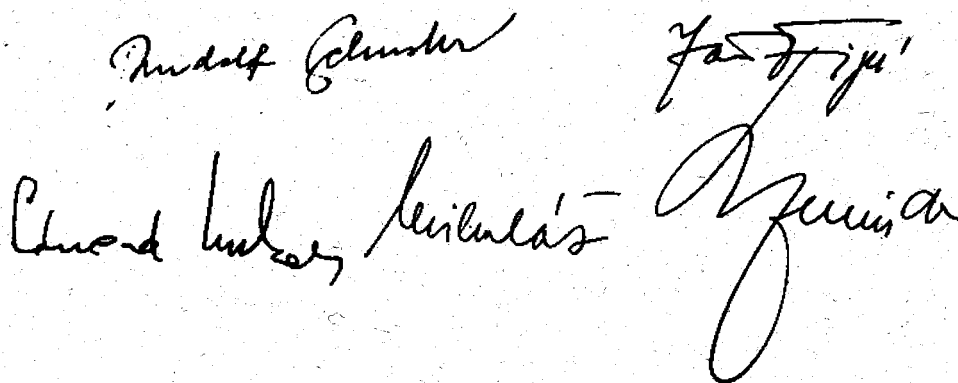 Rudolf Schuster Ján Figeľ
Eduard Kukan Mikuláš Dzurinda